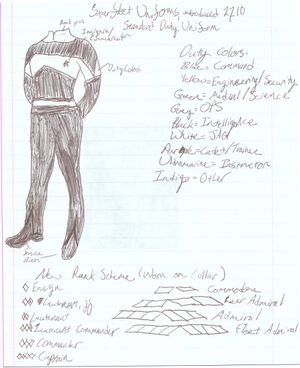 Starfleet Uniforms, introduced 2710
Standard Duty Uniform
Rank pins
Insignia/
Communicator
Duty Colors
Duty Colors:
Blue=Command
Yellow=Engineering/Security
Green=Medical/Science
Grey=OPS
Black=Intelligence
White=JAG
Purple=Cadet/Trainee
Ultramarine=Instructors
Indigo=Other
Service
Boots
New Rank Scheme (worn on Collar)
Ensign
Lieutenant, jg
Lieutenant
Lieutenant Commander
Commander
Captain
Commodore
Rear Admiral
Admiral
Fleet Admiral